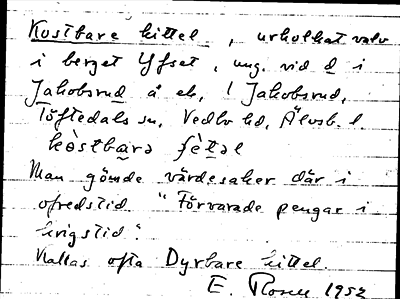 Kostbare kittel, urholkat valv
i berget Yfset, ung. vid d i
Jakobsrud å eb, l Jakobsrud,
Töftedals sn, Vedbo hd, Älvsb. l.
kòstbarə ʃètəl
Man gömde värdesaker där i
ofredstid. "Förvarade pengar i
krigstid".
Kallas ofta Dyrbare kittel.
E. Rosen 1952